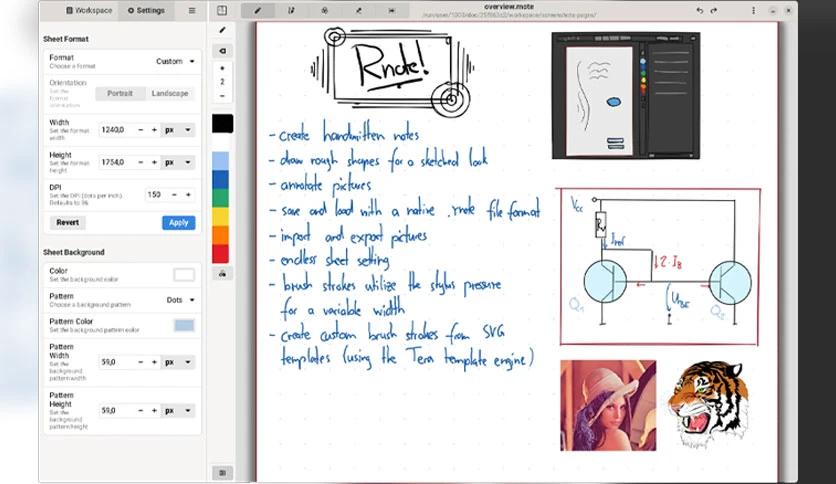 Workspace
Settings
overview.rnote
Sheet Format
Format
Choose a format
Custom
Orientation
Set the
format
orientation
Portrait
Landscape
Width
Set the format
width
1240,0 − + px
Height
Set the format
height
1754,0 − + px
DPI
Set the DPI (dots per inch).
Defaults to 96
150 − +
Revert
Apply
Sheet Background
Color
Set the background color
Pattern
Choose a background pattern
Dots
Pattern Color
Set the background pattern color
Pattern
Width
Set the
background
pattern width
59,0 − + px
Pattern
Height
Set the
background
pattern height
59,0 − + px
+
2
−
Rnote!
- create handwritten notes
- draw rough shapes for a sketched look
- annotate pictures
- save and load with a native .rnote file format
- import and export pictures
- endless sheet setting
- brush strokes utilize the stylus pressure
for a variable width
- create custom brush strokes from SVG
templates (using the Tera template engine)
Vcc
R
Iref
↓2·IB
UBE
Q1
Q2